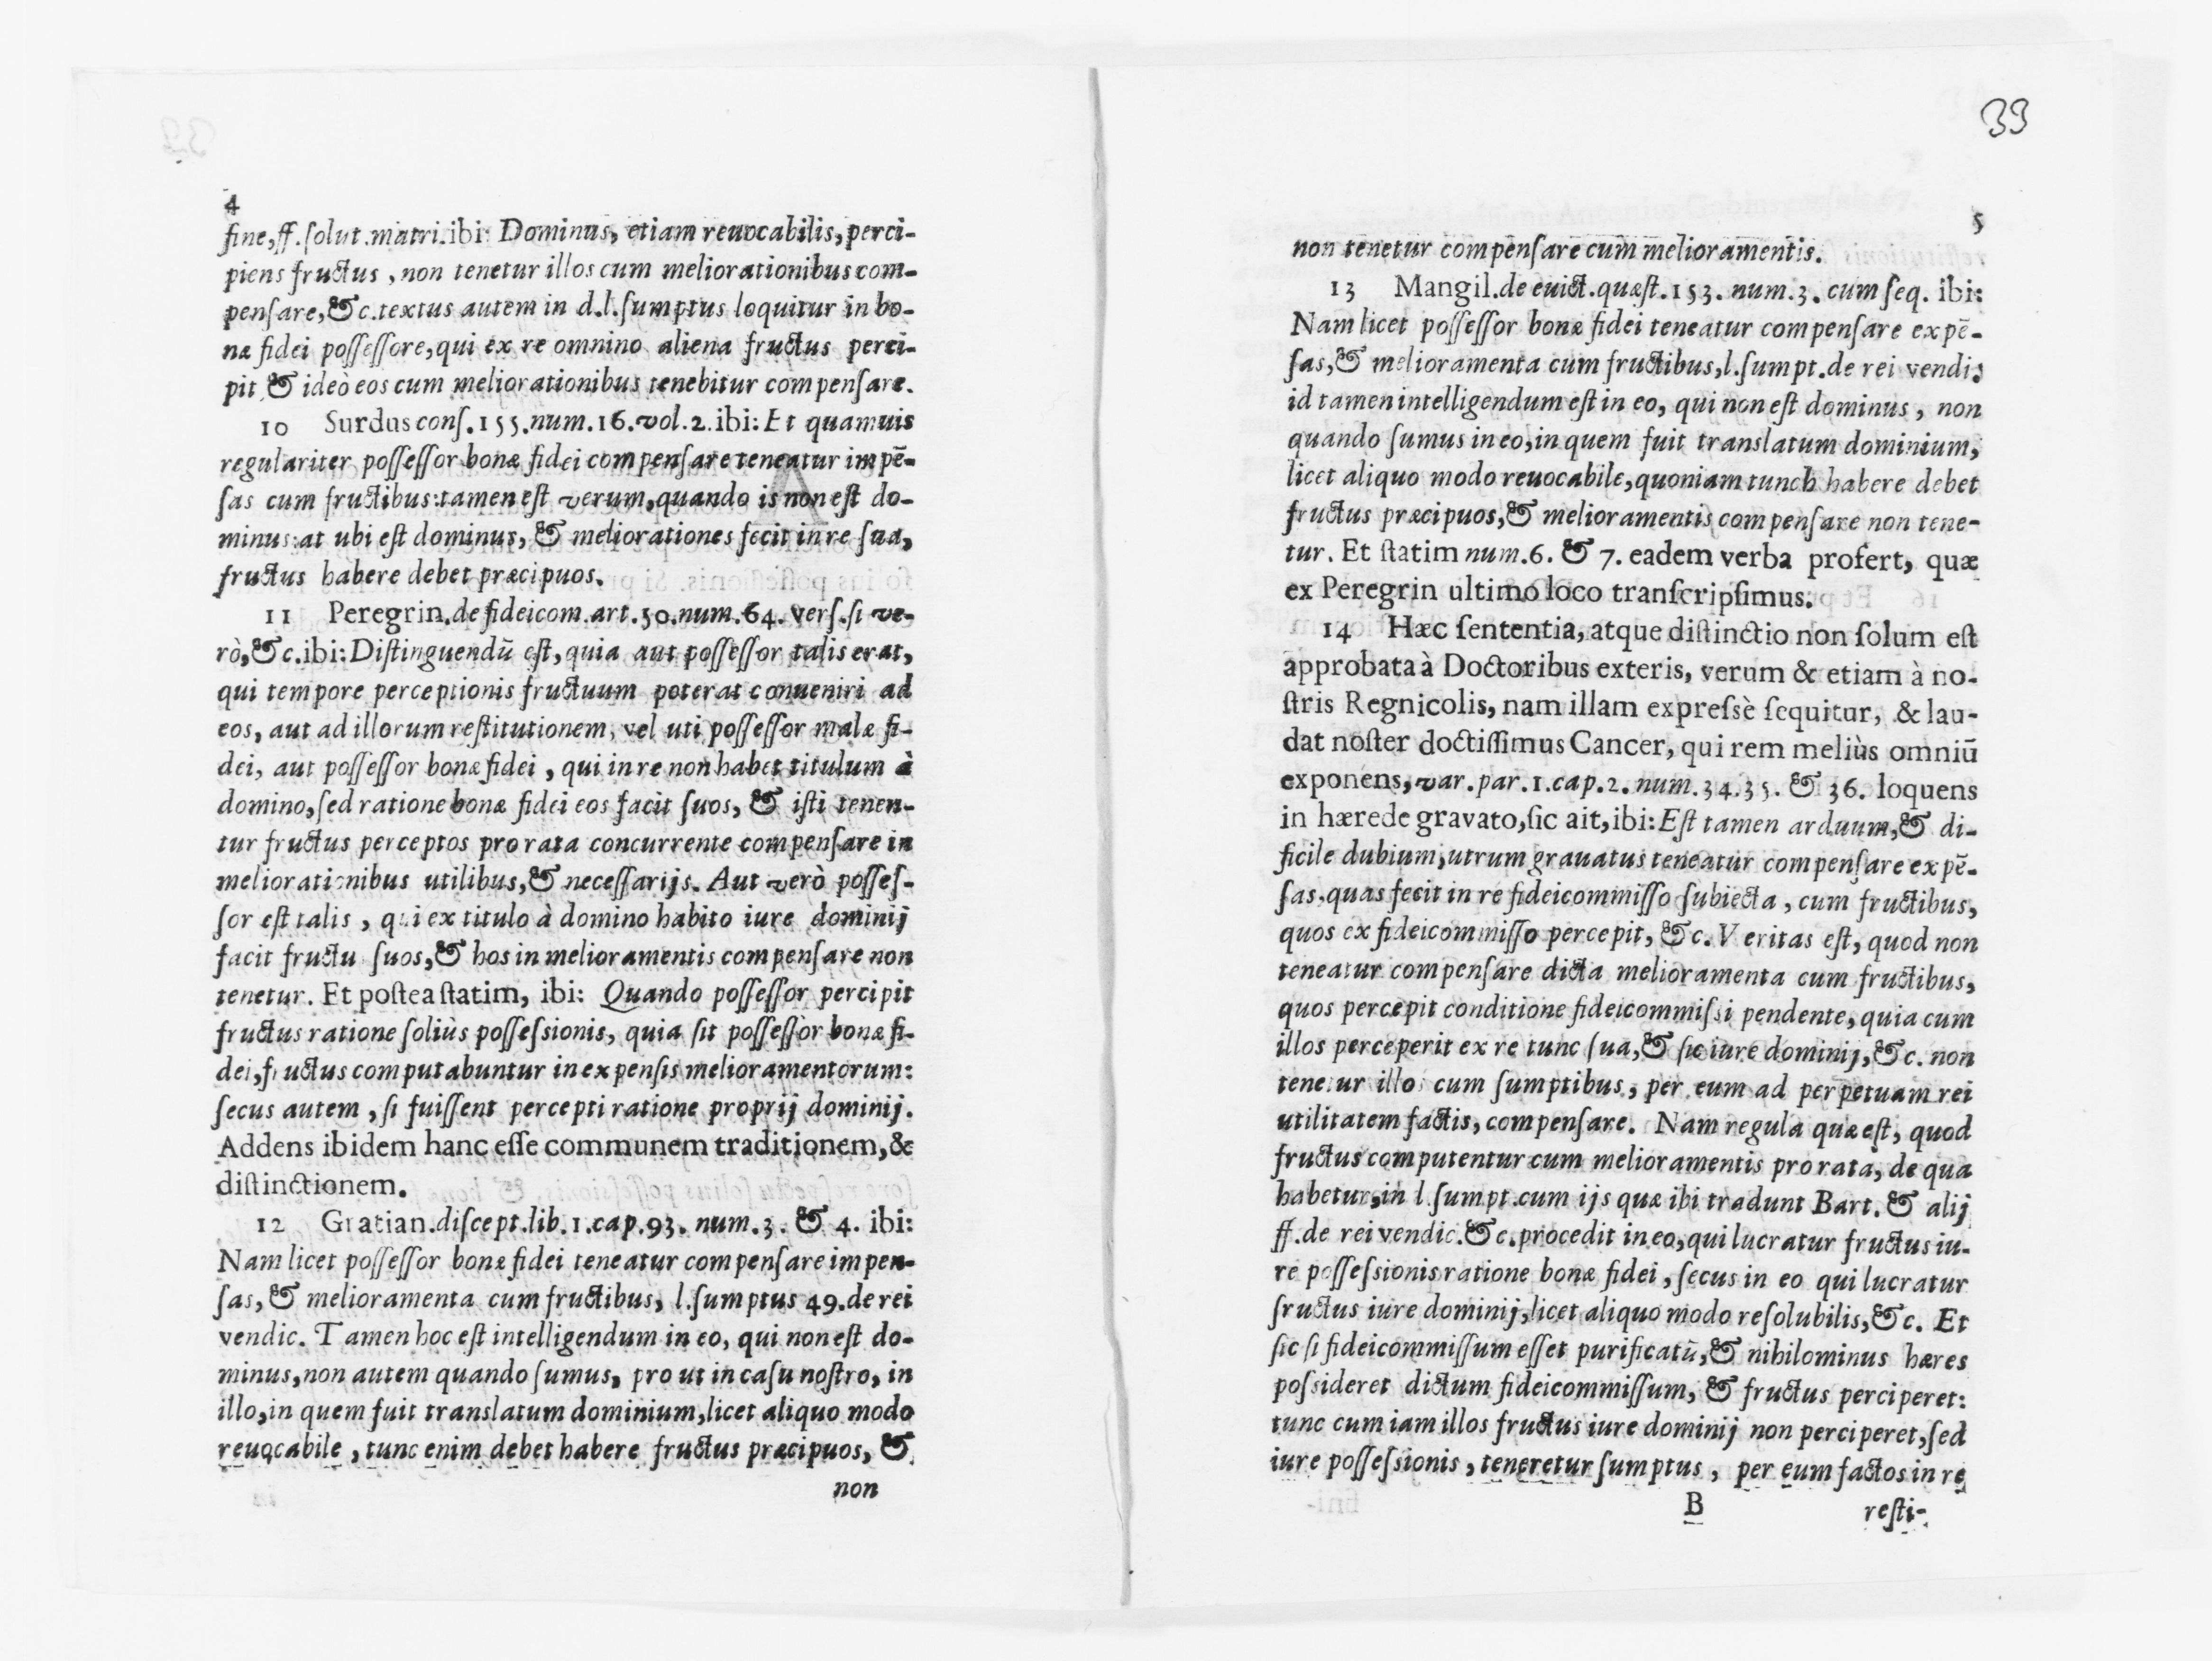 4
fine, ff. ſolut. matri. ibi: Dominus, etiam reuocabilis, perci-
piens fructus, non tenetur illos cum meliorationibus com-
penſare, & c. textus autem in d. l. ſumptus loquitur in bo-
næ fidei poſſeſſore, qui ex re omnino aliena fructus perci-
pit & ideò eos cum meliorationibus tenebitur compenſare.
10 Surdus conſ. 155. num. 16. vol. 2. ibi: Et quamuis
regulariter poſſeſſor bonæ fidei compenſare teneatur impē-
ſas cum fructibus: tamen eſt verum, quando is non eſt do-
minus: at ubi eſt dominus, & meliorationes fecit in re ſua,
fructus habere debet præcipuos.
11 Peregrin. de fideicom. art. 50. num. 64. verſ. ſi ve-
rò, & c. ibi: Diſtinguendū eſt, quia aut poſſeſſor talis erat,
qui tempore perceptionis fructuum poterat conueniri ad
eos, aut ad illorum reſtitutionem, vel uti poſſeſſor malæ fi-
dei, aut poſſeſſor bonæ fidei, qui in re non habet titulum à
domino, ſed ratione bonæ fidei eos facit ſuos, & iſti tenen-
tur fructus perceptos pro rata concurrente compenſare in
meliorationibus utilibus, & neceſſarijs. Aut verò poſſeſ-
ſor eſt talis, qui ex titulo à domino habito iure dominij
facit fructu ſuos, & hos in melioramentis compenſare non
tenetur. Et poſtea ſtatim, ibi: Quando poſſeſſor percipit
fructus ratione ſoliùs poſſeſsionis, quia ſit poſſeſſor bonæ fi-
dei, fructus computabuntur in expenſis melioramentorum:
ſecus autem, ſi fuiſſent percepti ratione proprij dominij.
Addens ibidem hanc eſſe communem traditionem, &
diſtinctionem.
12 Gratian. diſcept. lib. 1. cap. 93. num. 3. & 4. ibi:
Nam licet poſſeſſor bonæ fidei teneatur compenſare impen-
ſas, & melioramenta cum fructibus, l. ſumptus 49. de rei
vendic. Tamen hoc eſt intelligendum in eo, qui non eſt do-
minus, non autem quando ſumus, pro ut in caſu noſtro, in
illo, in quem fuit translatum dominium, licet aliquo modo
reuocabile, tunc enim debet habere fructus præcipuos, &
non
39
5
non tenetur compenſare cum melioramentis.
13 Mangil. de euict. quæſt. 153. num. 3. cum ſeq. ibi:
Nam licet poſſeſſor bonæ fidei teneatur compenſare expē-
ſas, & melioramenta cum fructibus, l. ſumpt. de rei vendi:
id tamen intelligendum eſt in eo, qui non eſt dominus, non
quando ſumus in eo, in quem fuit translatum dominium,
licet aliquo modo reuocabile, quoniam tunch habere debet
fructus præcipuos, & melioramentis compenſare non tene-
tur. Et ſtatim num. 6. & 7. eadem verba profert, quæ
ex Peregrin ultimo loco tranſcripſimus.
14 Hæc ſententia, atque diſtinctio non ſolum eſt
approbata à Doctoribus exteris, verum & etiam à no-
ſtris Regnicolis, nam illam expreſsè ſequitur, & lau-
dat noſter doctiſſimus Cancer, qui rem meliùs omniū
exponens, var. par. 1. cap. 2. num. 34. 35. & 36. loquens
in hærede gravato, ſic ait, ibi: Eſt tamen arduum, & di-
ficile dubium, utrum grauatus teneatur compenſare expē-
ſas, quas fecit in re fideicommiſſo ſubiecta, cum fructibus,
quos ex fideicommiſſo percepit, & c. Veritas eſt, quod non
teneatur compenſare dicta melioramenta cum fructibus,
quos percepit conditione fideicommiſsi pendente, quia cum
illos perceperit ex re tunc ſua, & ſic iure dominij, & c. non
tenetur illos cum ſumptibus, per eum ad perpetuam rei
utilitatem factis, compenſare. Nam regula quæ eſt, quod
fructus computentur cum melioramentis pro rata, de qua
habetur, in l. ſumpt. cum ijs quæ ibi tradunt Bart. & alij
ff. de rei vendic. & c. procedit in eo, qui lucratur fructus iu-
re poſſeſsionis ratione bonæ fidei, ſecus in eo qui lucratur
fructus iure dominij, licet aliquo modo reſolubilis, & c. Et
ſic ſi fideicommiſſum eſſet purificatū, & nihilominus hæres
poſsideret dictum fideicommiſſum, & fructus perciperet:
tunc cum iam illos fructus iure dominij non perciperet, ſed
iure poſſeſsionis, teneretur ſumptus, per eum factos in re
B reſti-